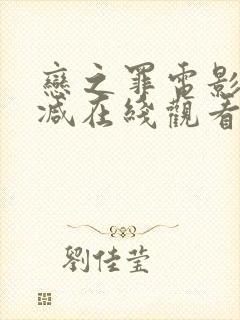 戀之罪電影
減在綫觀看
劉佳莹